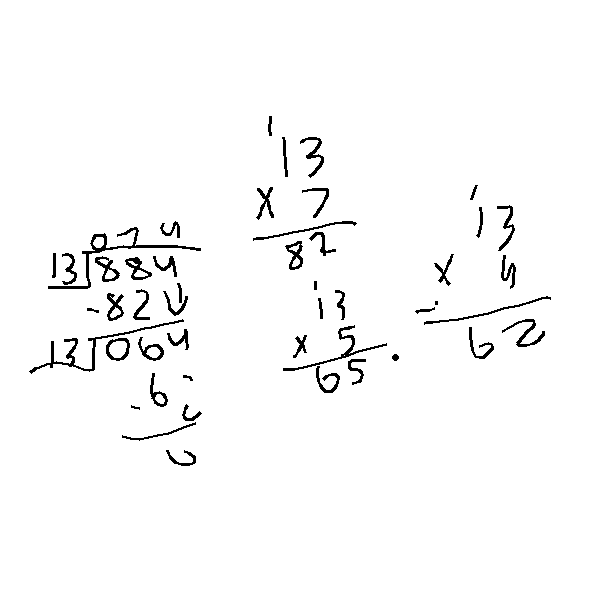 074
13)884
-82↓
13)064
-62
0
1
13
x 7
82
13
x 5
65 .
1
13
x 4
62